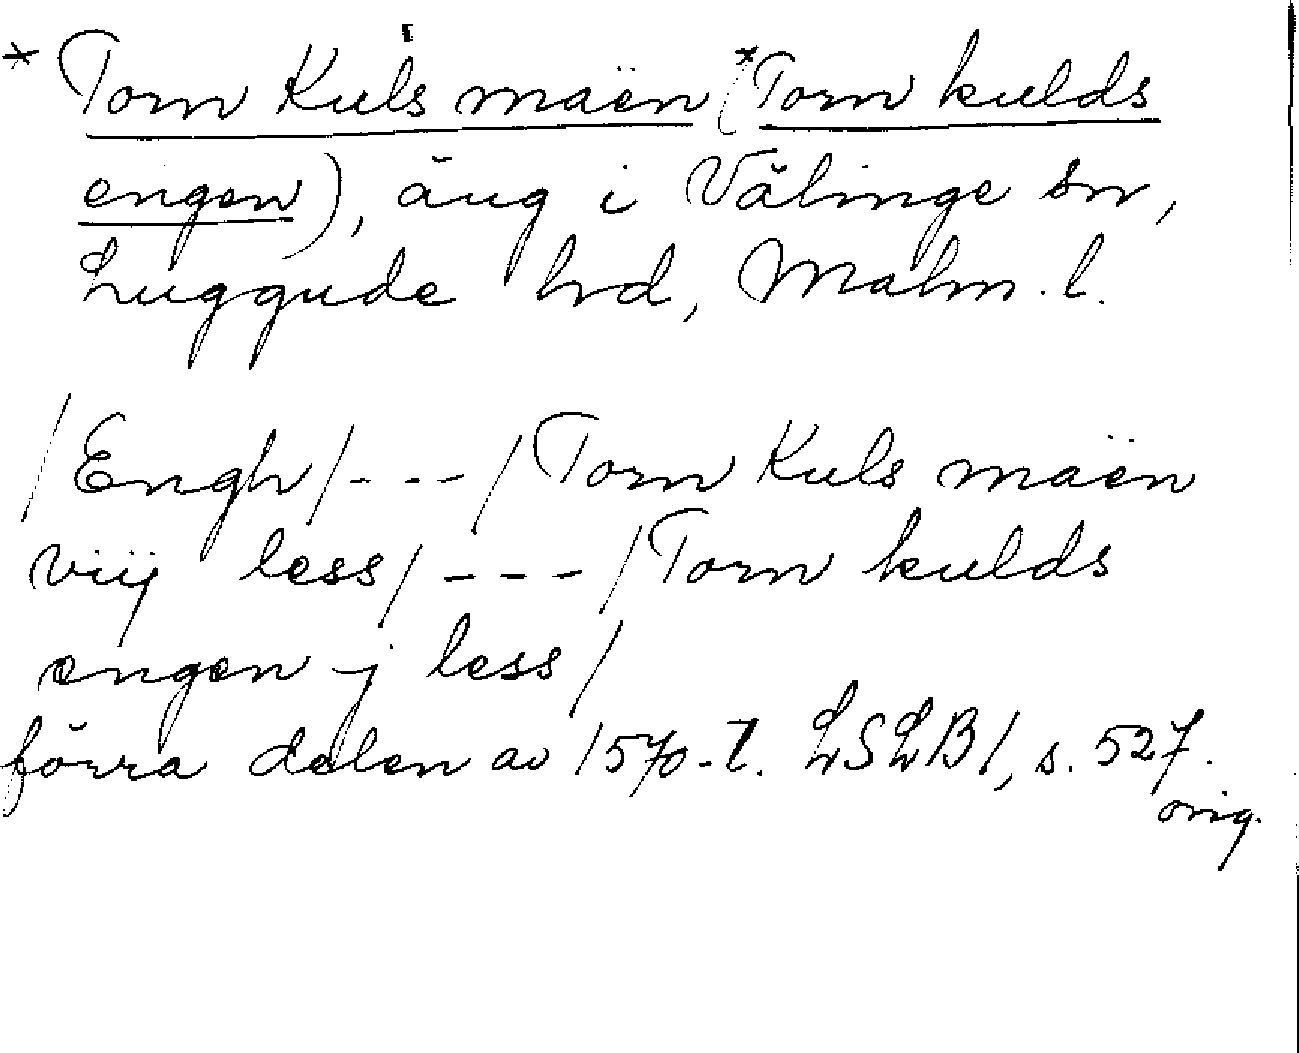 * Torn Kuls maën (*Torn kulds
engen), äng i Välinge sn,
Luggude hd, Malm. l.
/Engh/---/Torn Kuls maën
viij less/---/Torn kulds
engen j less/
förra delen av 1570-t. LSLB1, s. 527.
orig.